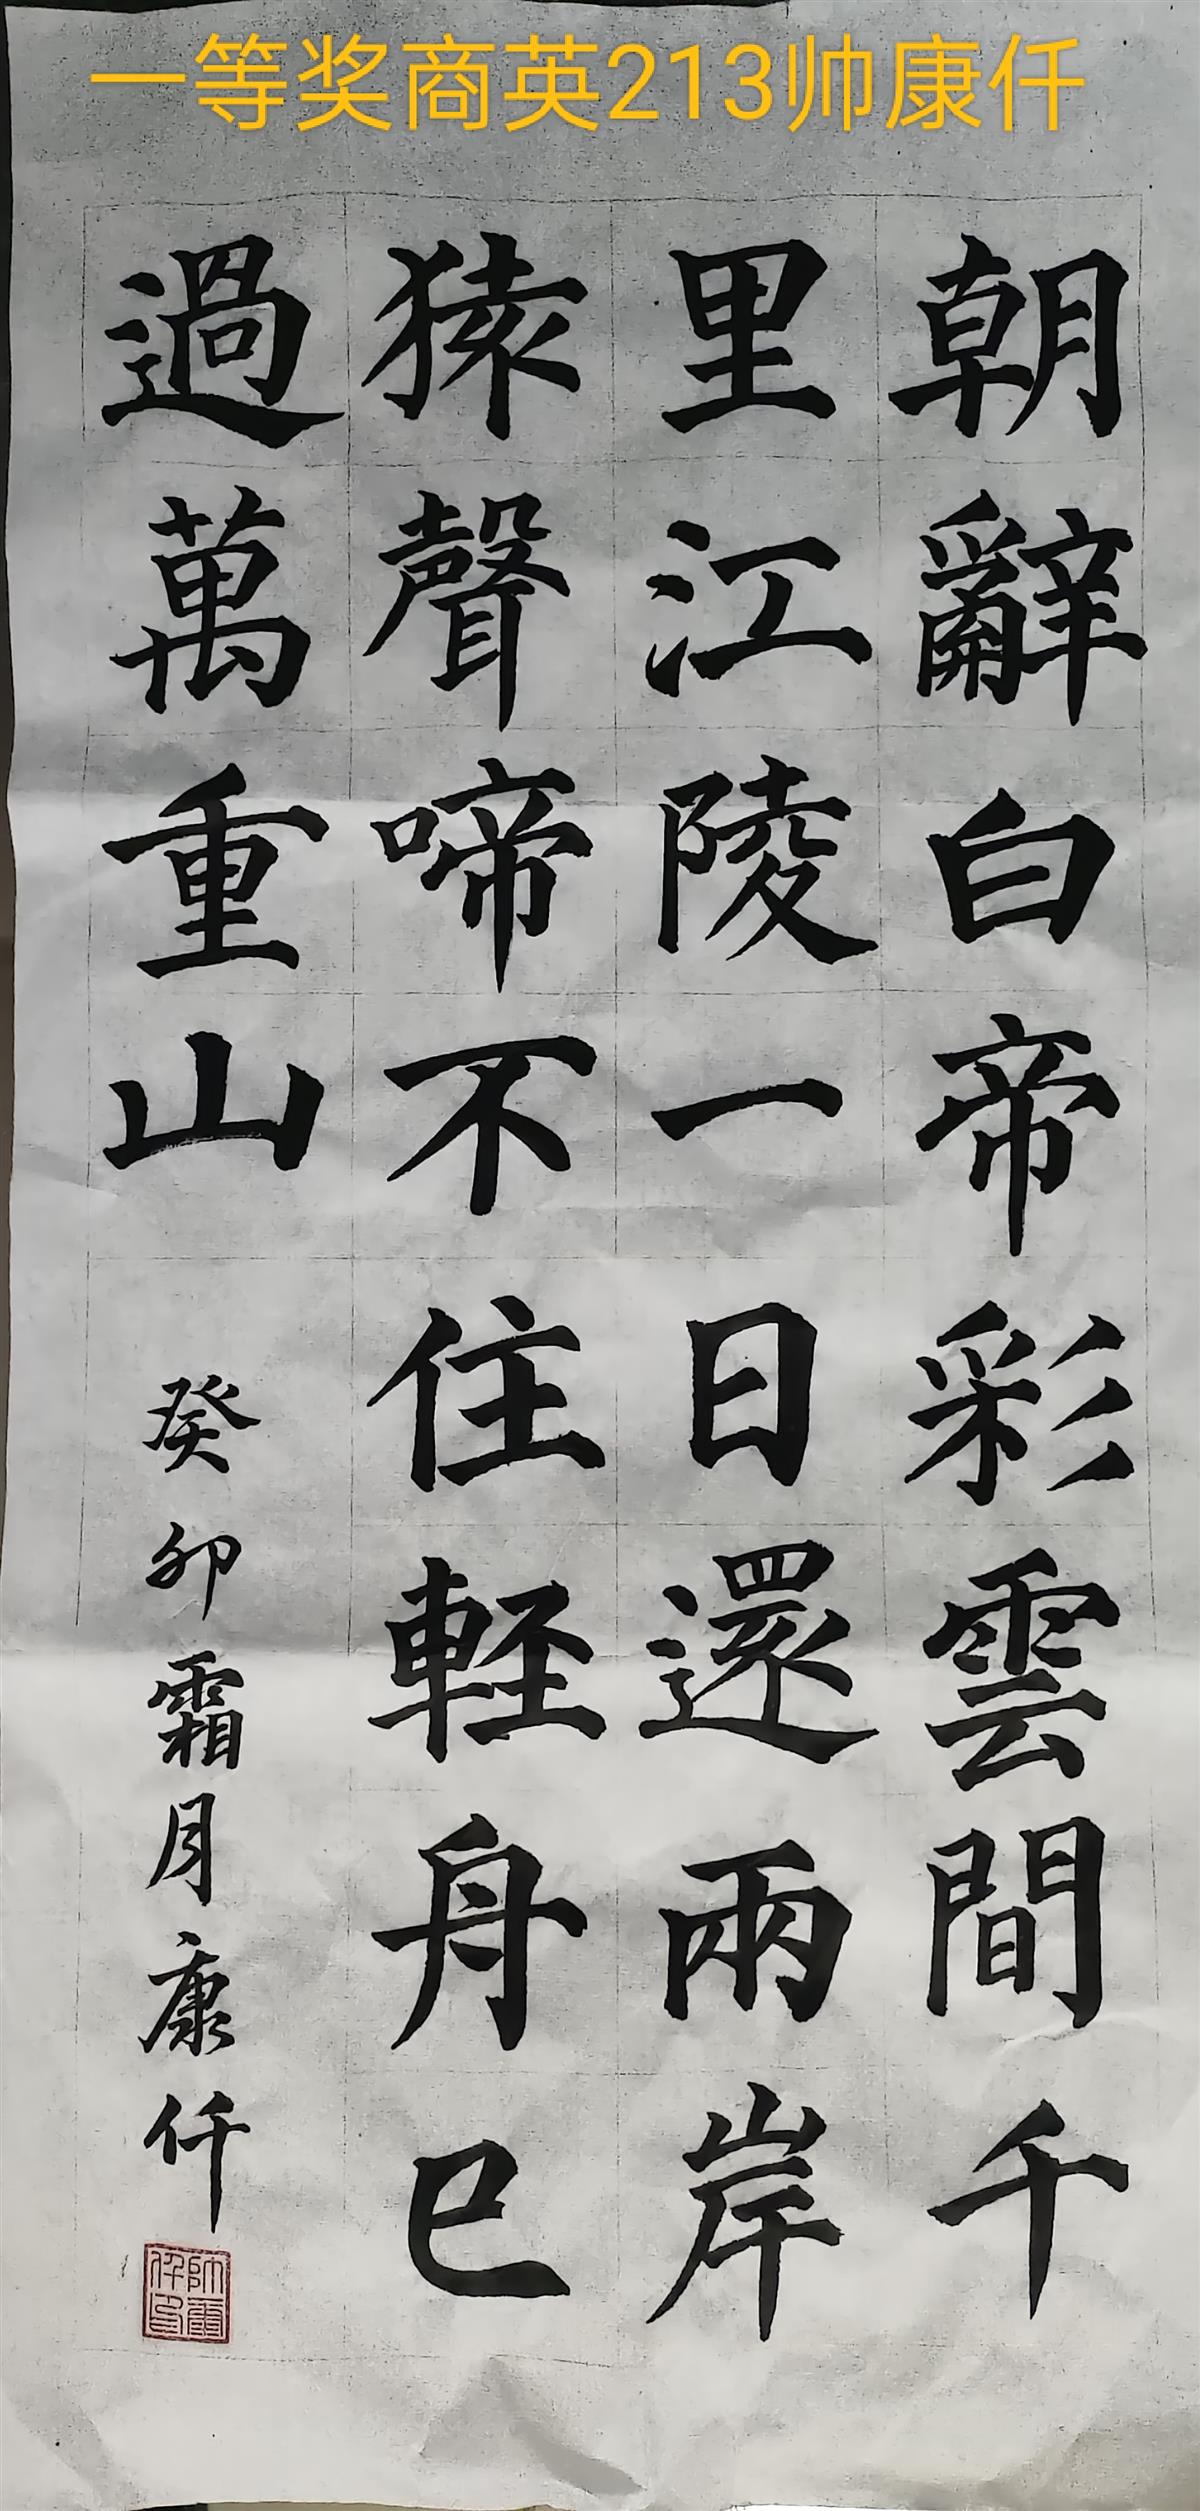 一等奖商英213帅康仟
朝辭白帝彩雲間千
里江陵一日還兩岸
猿聲啼不住軽舟已
過萬重山
癸卯霜月康仟
帅康仟印